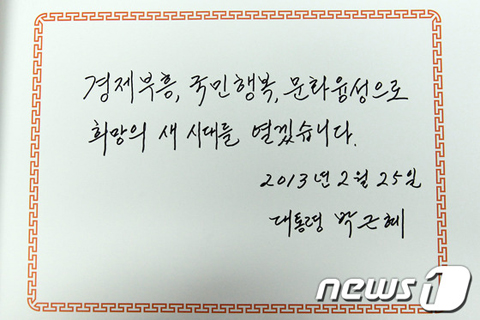 경제부흥, 국민행복, 문화융성으로
희망의 새 시대를 열겠습니다.
2013년 2월 25일
대통령 박근혜
news1